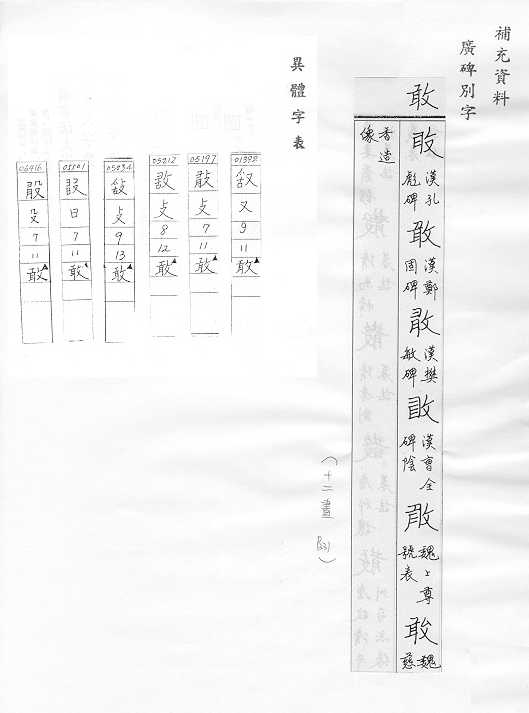 補充資料
廣碑別字
敢
敢
漢孔
彪碑
敢
漢鄭
固碑
敢
漢樊
敏碑
敢
漢曹全
碑陰
敢
魏上尊
號表
敢
魏
慈
香造
像
(十二畫
異體字表
01398
又
9
11
敢
05197
攴
7
11
敢
05212
攴
8
12
敢
攴
9
13
敢
日
7
11
敢
殳
7
11
敢